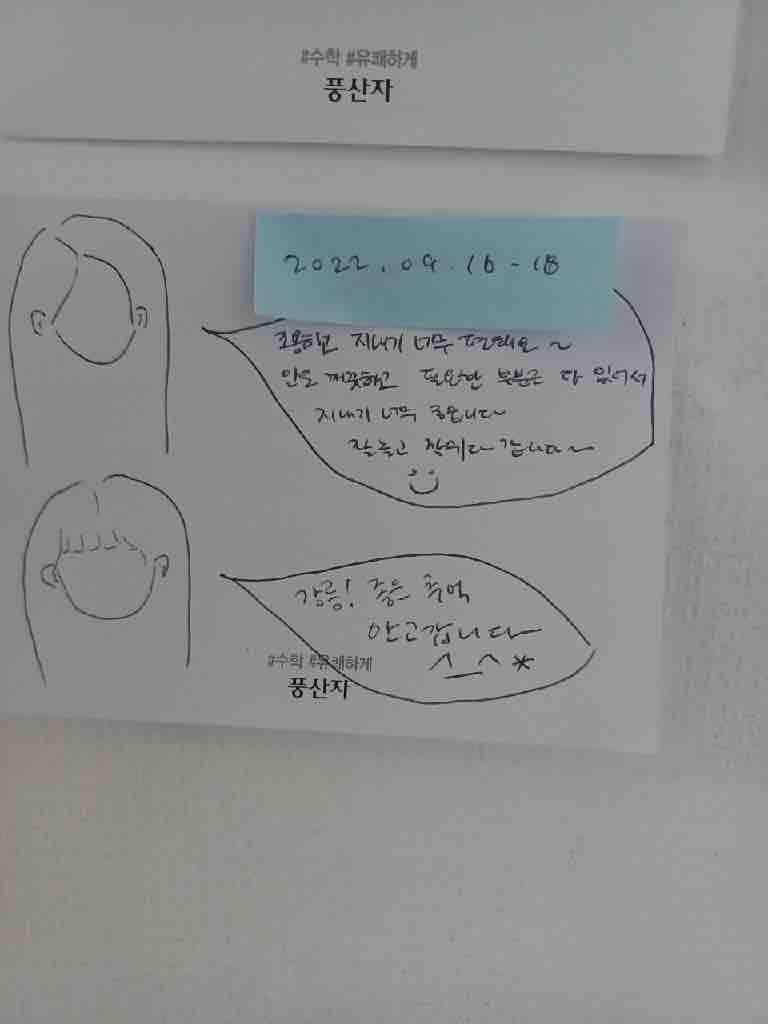 #수학 #유쾌하게
풍산자
2022.09.16-18
조용하고 지내기 너무 편해요~
안도 깨끗하고 필요한 부분은 다 있어서
지내기 너무 좋습니다~
잘 놀고 잘쉬다 갑니다~
강릉! 좋은 추억
안고갑니다~
^_^*
#수학 #유쾌하게
풍산자